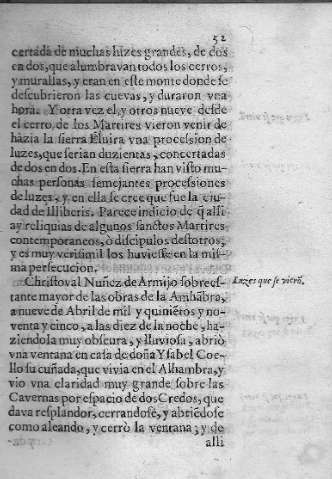 52
certada de muchas luzes grandes, de dos
en dos, que alumbravan todos los cerros,
y murallas, y eran en este monte donde se
descubrieron las cuevas, y duraron vna
hora. Y otra vez el, y otros nueve desde
el cerro, de los Martires vieron venir de
házia la sierra Eluira vna procession de
luzes, que serian duzientas, concertadas
de dos en dos. En esta sierra han visto mu-
chas personas semejantes processiones
de luzes, y en ella se cree que fue la ciu-
dad de Illiberis. Parece indicio de q̃ alsi
ay reliquias de algunos sanctos Martires
contemporaneos, ò discipulos destotros;
y es muy verisimil los huviesse en la mis-
ma persecucion.
Christoval Nuñez de Armijo sobrest-
tante mayor de las obras de la Alhãbra,
a nueve de Abril de mil y quiniẽros y no-
venta y cinco, a las diez de la noche, ha-
ziendola muy obscura, y lluviosa, abriò
vna ventana en casa de doña Ysabel Coe-
llo su cuñada, que vivia en el Alhambra, y
vio vna claridad muy grande sobre las
Cavernas por espacio de dos Credos, que
dava resplandor, cerrandose, y abriẽdose
como aleando, y cerrò la ventana; y de
alli
Luzes que se vierõ.